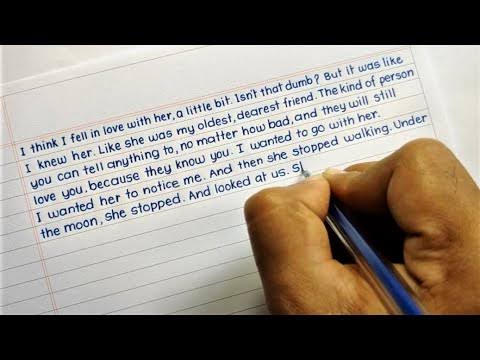 I think I fell in love with her, a little bit. Isn't that dumb? But it was like
I knew her. Like she was my oldest, dearest friend. The kind of person
you can tell anything to, no matter how bad, and they will still
love you. because they know you. I wanted to go with her.
I wanted her to notice me. And then she stopped walking. Under
the moon, she stopped. And looked at us. S